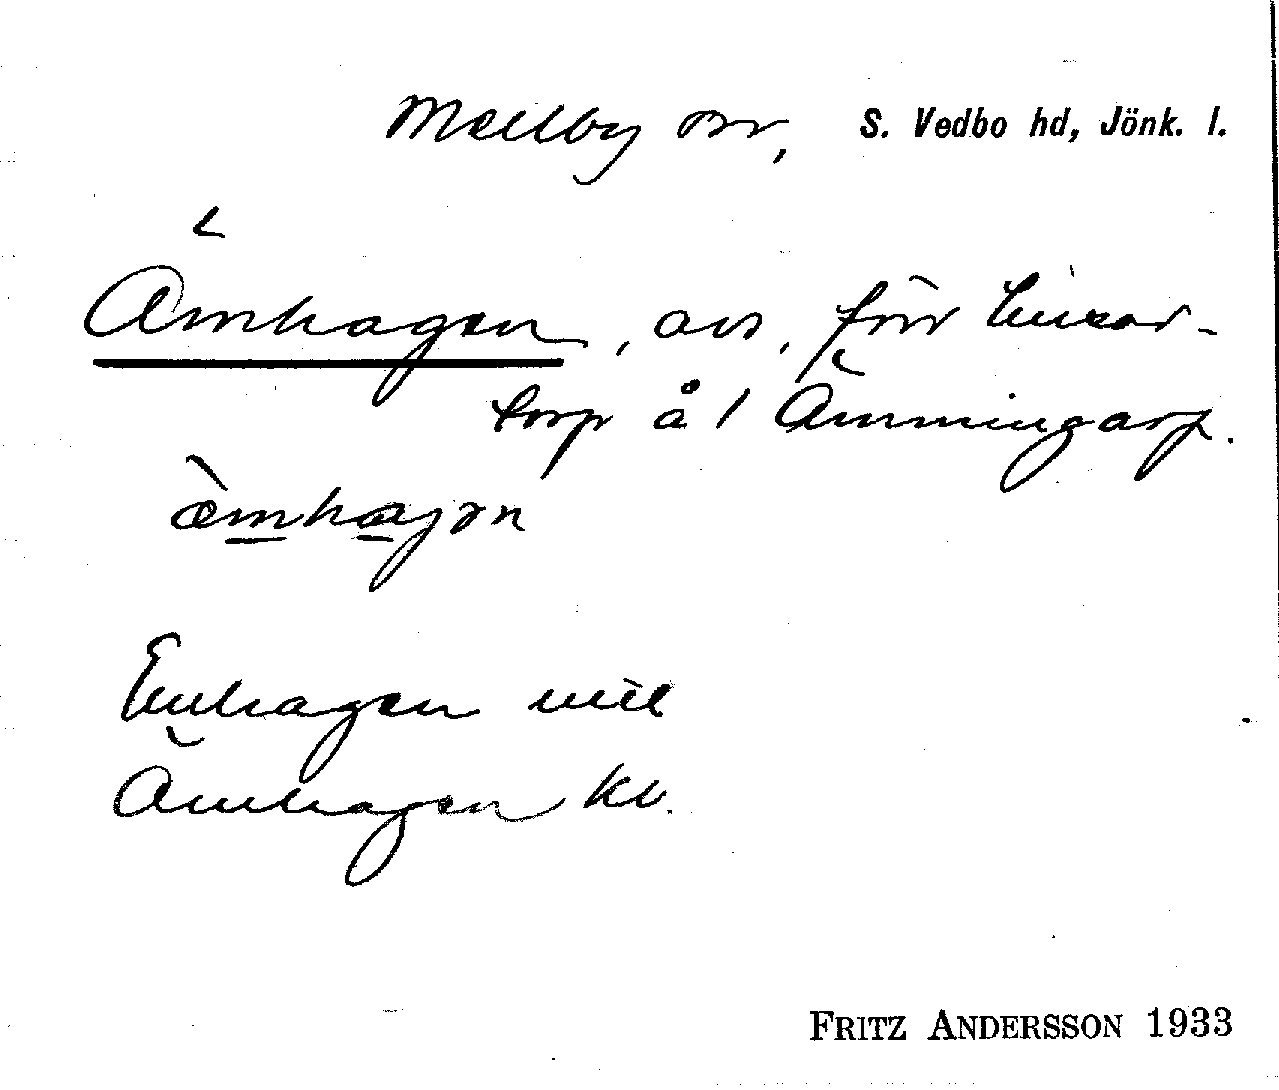 Mellby sn, S. Vedbo hd, Jönk. l.
Ämhagen, avs, förr husar-
torp å 1 Ämmingarp.
æ̀mhagən
Emhagen
Ämhagen kb.
FRITZ ANDERSSON 1933